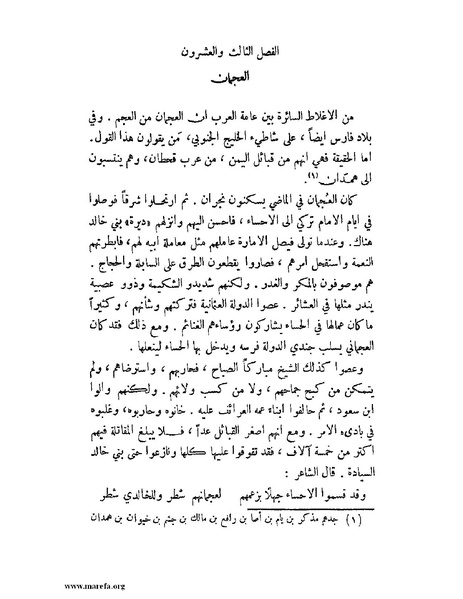 الفصل الثالث والعشرون
العجمان
من الاغلاط السائرة بين عامة العرب ان العجمان من العجم . وفي
بلاد فارس ايضاً ، على شاطىء الخليج الجنوبي ، من يقولون هذا القول .
اما الحقيقة فهي انهم من قبائل اليمن ، من عرب قحطان ، وهم ينتسبون
الى همدان (١).
كان العُجمان في الماضي يسكنون نجران . ثم ارتحلوا شرقاً فوصلوا
في ايام الامام تركي الى الاحساء ، فاحسن اليهم وانزلهم «ديرة» بني خالد
هناك . وعندما تولى فيصل الامارة عاملهم مثل معاملة ابيه لهم ، فابطرتهم
النعمة واستفحل امرهم ، فصاروا يقطعون الطرق على السابلة والحجاج .
هم موصوفون بالمكر والغدر . ولكنهم شديدو الشكيمة وذوو عصبية
يندر مثلها في العشائر . عصوا الدولة العثمانية فتركتهم وشأنهم ، وكثيراً
ما كان عمالها في الحساء يشاركون رؤساءهم الغنائم . ومع ذلك فقد كان
العجماني يسلب جندي الدولة فرسه ويدخل بها الحساء لينعلها .
وعصوا كذلك الشيخ مباركاً الصباح ، فحاربهم ، واسترضاهم ، ولم
يتمكن من كبح جماحهم ، ولا من كسب ولائهم . ولكنهم والوا
ابن سعود ، ثم حالفوا ابناء عمه العرائف عليه . خانوه وحاربوه ، وغلبوه
في بادىء الامر . ومع انهم اصغر القبائل عداً ، فلا يبلغ المقاتلة فيهم
اكثر من خمسة آلاف ، فقد تفوقوا عليها كلها ونازعوا حتى بني خالد
السيادة . قال الشاعر :
وقد قسموا الاحساء جهلًا بزعمهم لعجمانهم شطر وللخالدي شطر
(١) جدهم مذكر بن يام بن اصا بن رافع بن مالك بن جشم بن خيوان بن همدان
www.marefa.org